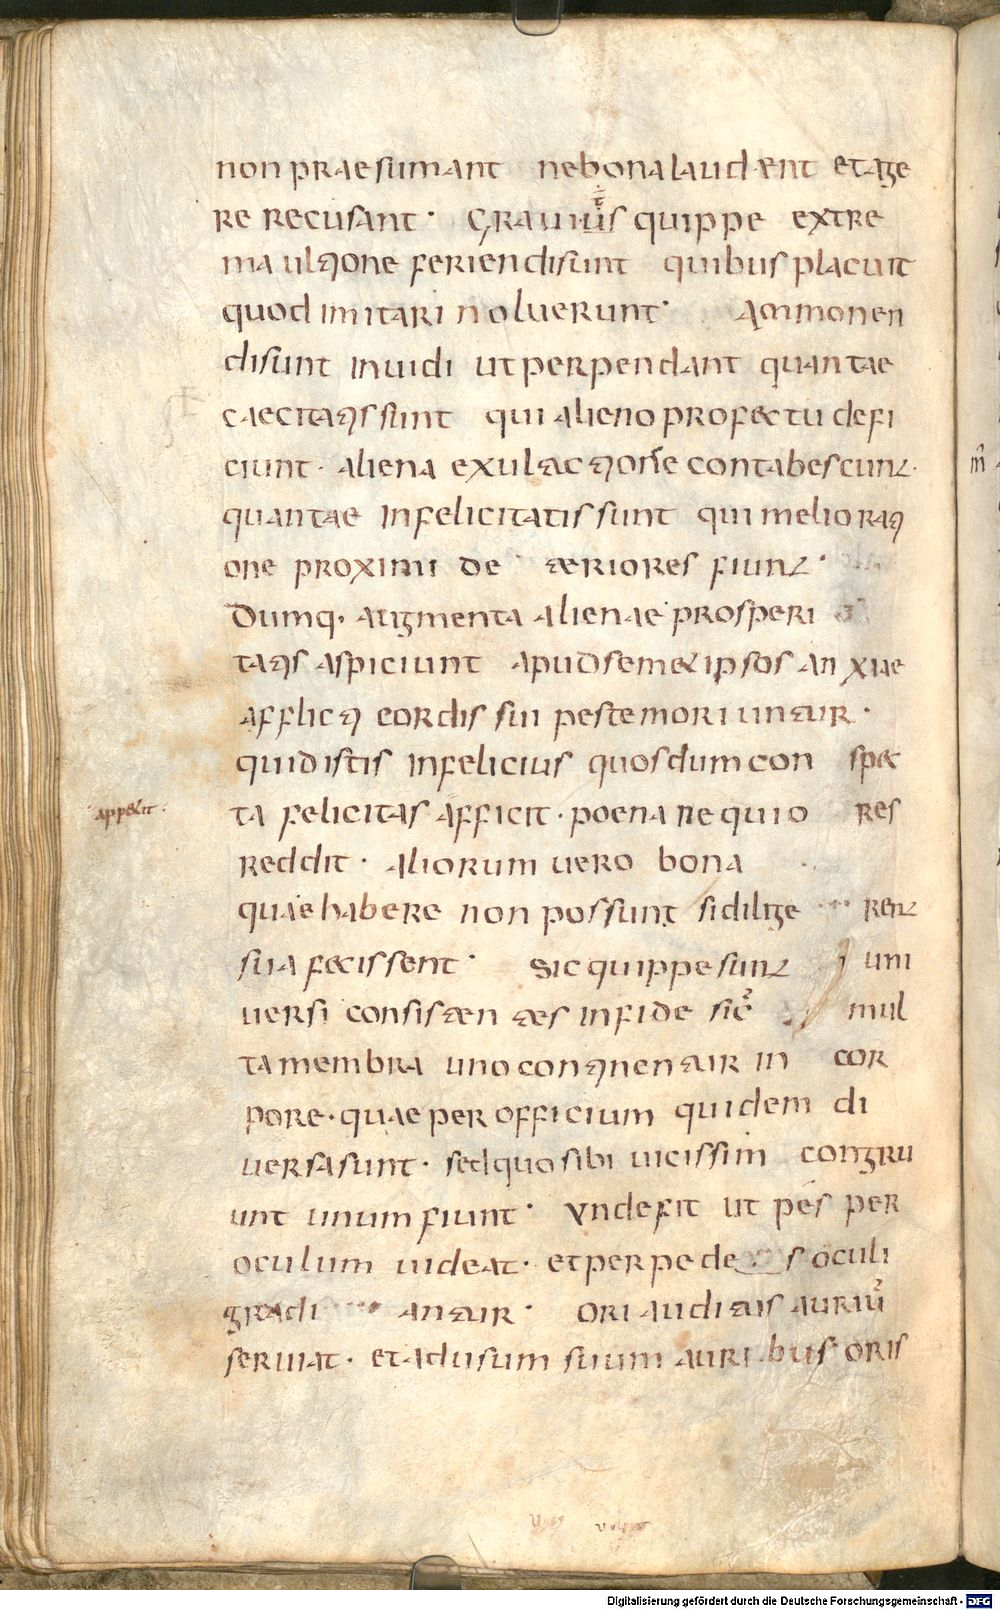 non praesumant ne bona laudent et age
re recusant · Grauius quippe extre
ma ultione feriendi sunt quibus placuit
quod imitari noluerunt · Ammonen
di sunt inuidi ut perpendant quantae
caecitatis sunt qui alieno profectu defi
ciunt · aliena exultactione contabescunt ·
quantae infelicitatis sunt qui meliorati
one proximi de teriores fiunt ·
Dumq· augmenta alienae prosperi
tatis aspiciunt apud semet ipsos anxiae
afflicti cordis sui peste moriuntur ·
quid istis infelicius quos dum con spec
appetit ·
ta felicitas afficit · poena nequio res
reddit · aliorum uero bona
quae habere non possunt si dilige rent
sua fecissent · Sic quippe sunt uni
uersi consistentes in fide sic̄ mul
ta membra uno continentur in cor
pore · quae per officium quidem di
uersa sunt · sed quo sibi uicissim congru
unt unum fiunt · Unde fit ut pes per
oculum uideat · et per pedes oculi
gradiantur · ori auditus auriū
seruiat · et ad usum suum auribus oris
Digitalisierung gefördert durch die Deutsche Forschungsgemeinschaft - DFG